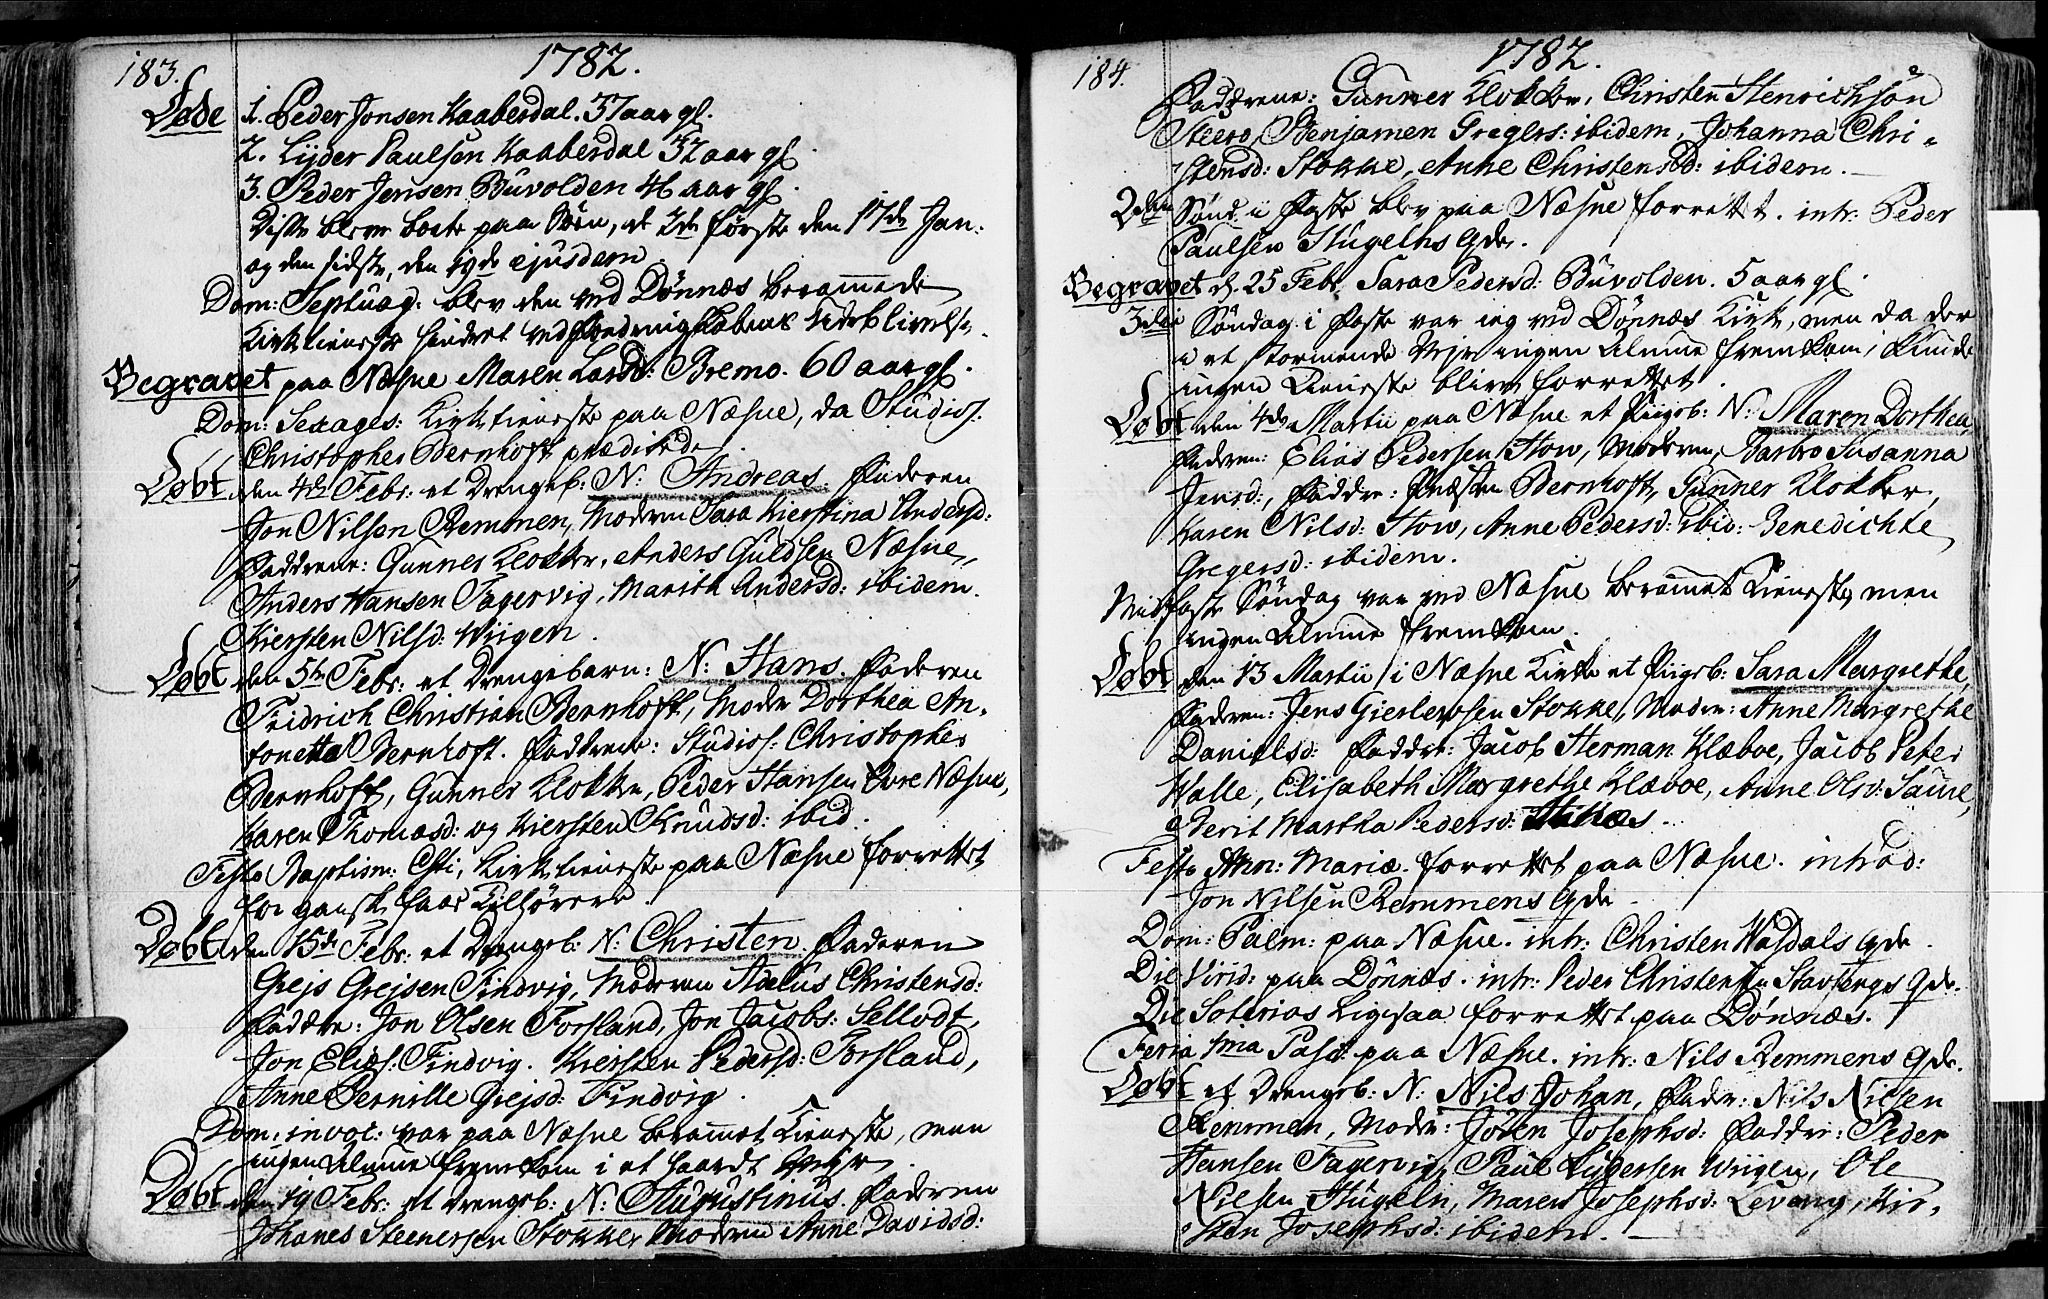 183.
1782.
Døde 1. Peder Jonsen Kaaberdal. 37 aar gl.
2. Lyder Paulsen Kaaberdal 32 aar gl.
3. Peder Jensen Buvolden 46 aar gl.
Disse bleve borte paa Søen, de 2de første den 17de Jan:
og den sidste, den 19de ejusdem
Dom: Septuag: blev den ved Dønnæs berammede
Kirketieneste hindret ved Udeblivelse.
Begravet paa Næsne Maren Larsd: Bremo. 60 aar gl.
Dom: Sexages: Kirketieneste paa Næsne, da Studios.
Christopher Bernhoft prædikede
Døbt den 4de Febr: et Drengeb: N: Andreas. Faderen
Jon Nilsen Remmen, Moderen Sara Kierstina Andersd:
Faddrene: Gunner Klokker, Anders Guldsen Næsne,
Anders Hansen Fagervig, Marith Andersd: ibidem.
Kiersten Nilsd: Wiigen.
Døbt den 5te Febr: et Drengebarn: N: Hans. Faderen
Fridrich Christian Bernhoft, Moder Dorthea An-
tonetta Bernhoft. Faddrene: Studios: Christopher
Bernhoft, Gunner Klokker, Peder Hansen Øvre Næsne,
Karen Thomasd: og Kiersten Knudsd: ibid.
Festo Baptism: Xsti, Kirketieneste paa Næsne forrettet
for ganske faae Tilhørere
Døbt den 15de Febr: et Drengeb: N: Christen. Faderen
Grejs Grejsen Findvig, Moderen Christensd:
Faddre: Jon Olsen Forsland, Jon Jacobs: Sellvodt,
Jon Elies: Findvig. Kiersten Pedersd: Forsland,
Anne Pernille Grejsd: Findvig.
Dom: invoc: var paa Næsne berammet Tieneste, men
ingen Almue fremkom i et haardt Vejr
Døbt den 19 Febr: et Drengeb: N: Augustinus. Faderen
Johanes Steenersen Stokke, Moderen Anne Davidsd:
184.
1782.
Faddrene: Gunner Klokker, Christen Henrichson
Steero, Benjamen Gregers: ibidem, Johanna Chri-
stensd: Stokke, Anne Christensd: ibidem.
2den Sønd. i Faste blev paa Næsne forrettet. intr: Peder
Paulsen Hugelns Qde.
Begravet d. 25 Febr. Sara Pedersd: Buvolden. 5 aar gl.
3die Søndag i Faste var ieg ved Dønnæs Kirke, men da der
i et stormende Vejr ingen Almue fremkom, kunde
ingen Tieneste blive forrettet.
Døbt den 4de Martii paa Næsne et Piigeb: N: Maren Dorthea,
Faderen: Elias Pedersen How, Moderen, Barbro Susanna
Jensd:, Faddre: Præsten Bernhoft, Gunner Klokker,
Karen Nilsd: How, Anne Pedersd: ibid: Benedichte
Gregersd: ibidem.
Midfaste Søndag var ved Næsne berammet Tieneste, men
ingen Almue fremkom.
Døbt den 13 Martii i Næsne Kirke et Piigeb: Sara Margrethe,
Faderen: Jens Gierlewsen Stokke, Moder: Anne Margrethe
Danielsd: Faddre: Jacob Herman Klæboe, Jacob Peter
Walle, Elisabeth Margrethe Klæboe, Anne Olsd: Saure,
Berit Martha Pedersd:
Festo Ann: Mariæ. forrettet paa Næsne. introd:
Jon Nilsen Remmens Qde.
Dom: Palm: paa Næsne. intr: Christen Wasdals Qde.
Die Virid: paa Dønnæs. intr: Peder Christensen Stavsengs Qde.
Die Soterias Ligesaa forrettet paa Dønnæs.
Feria 1ma Pasc: paa Næsne. intr: Nils Remmens Qde.
Døbt et Drengeb: N: Nils Johan, Fader: Nils Nilsen
Remmen, Moder: Joren Josephsd: Faddre: Peder
Hansen Fagervig, Paul Lydersen Wiigen, Ole
Nilsen Hugeln, Maren Josephsd: Levang, Kir-
sten Josephsd: ibidem.